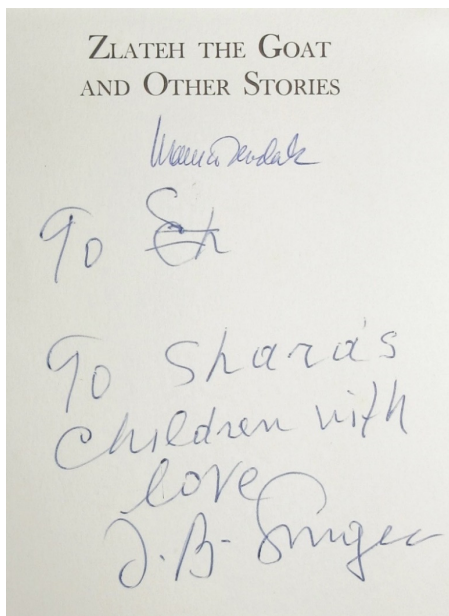 ZLATEH THE GOAT
AND OTHER STORIES
Maurice Sendak
To
To Shara's
children with
love
I. B. Singer